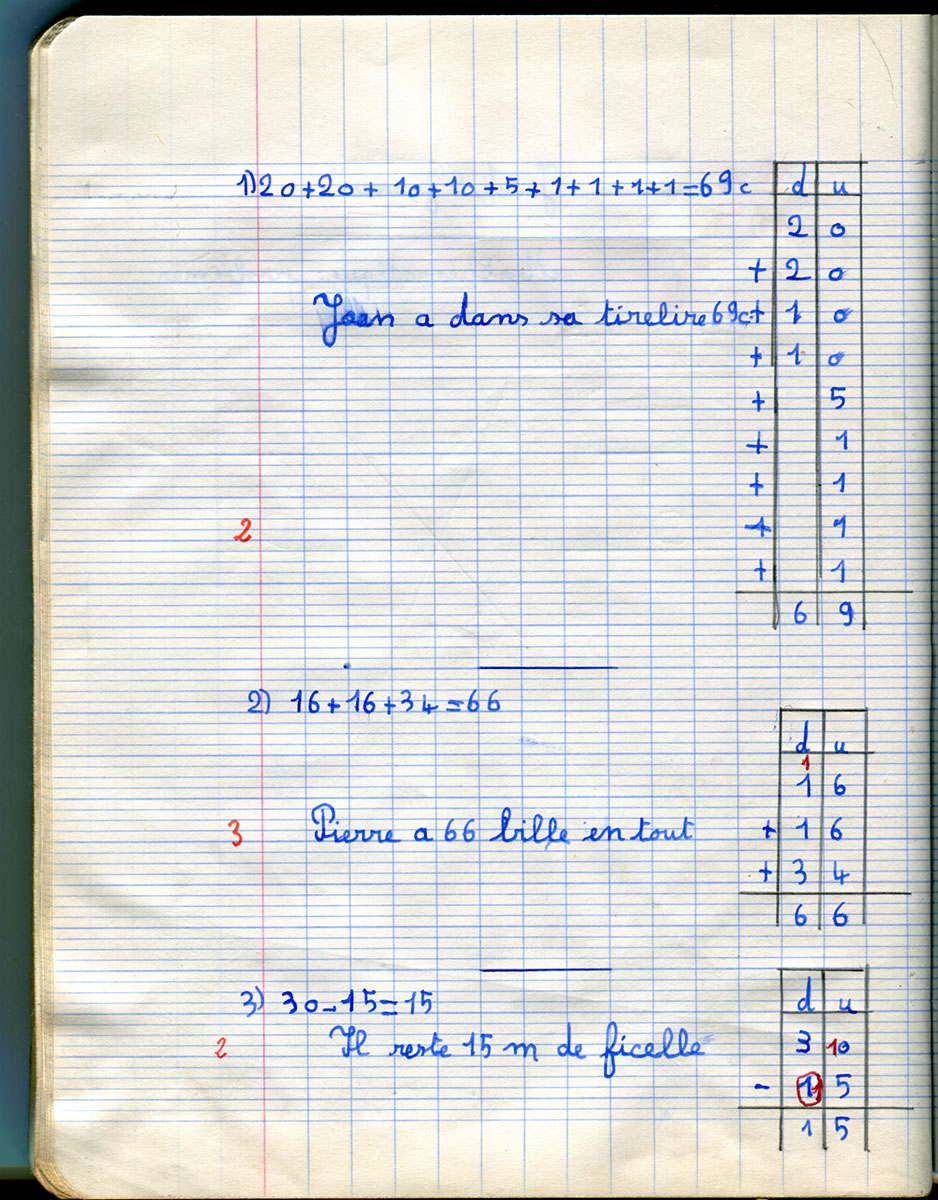 1) 20+20+10+10+5+1+1+1+1=69c
d u
2 0
+ 2 0
Yoan a dans sa tirelire 69c
+ 1 0
+ 1 0
+ 5
+ 1
+ 1
2
+ 1
+ 1
6 9
2) 16+16+34=66
d u
1
1 6
3
Pierre a 66 bille en tout
+ 1 6
+ 3 4
6 6
3) 30-15=15
d u
2
Il reste 15 m de ficelle
3 10
- 1 1 5
1 5